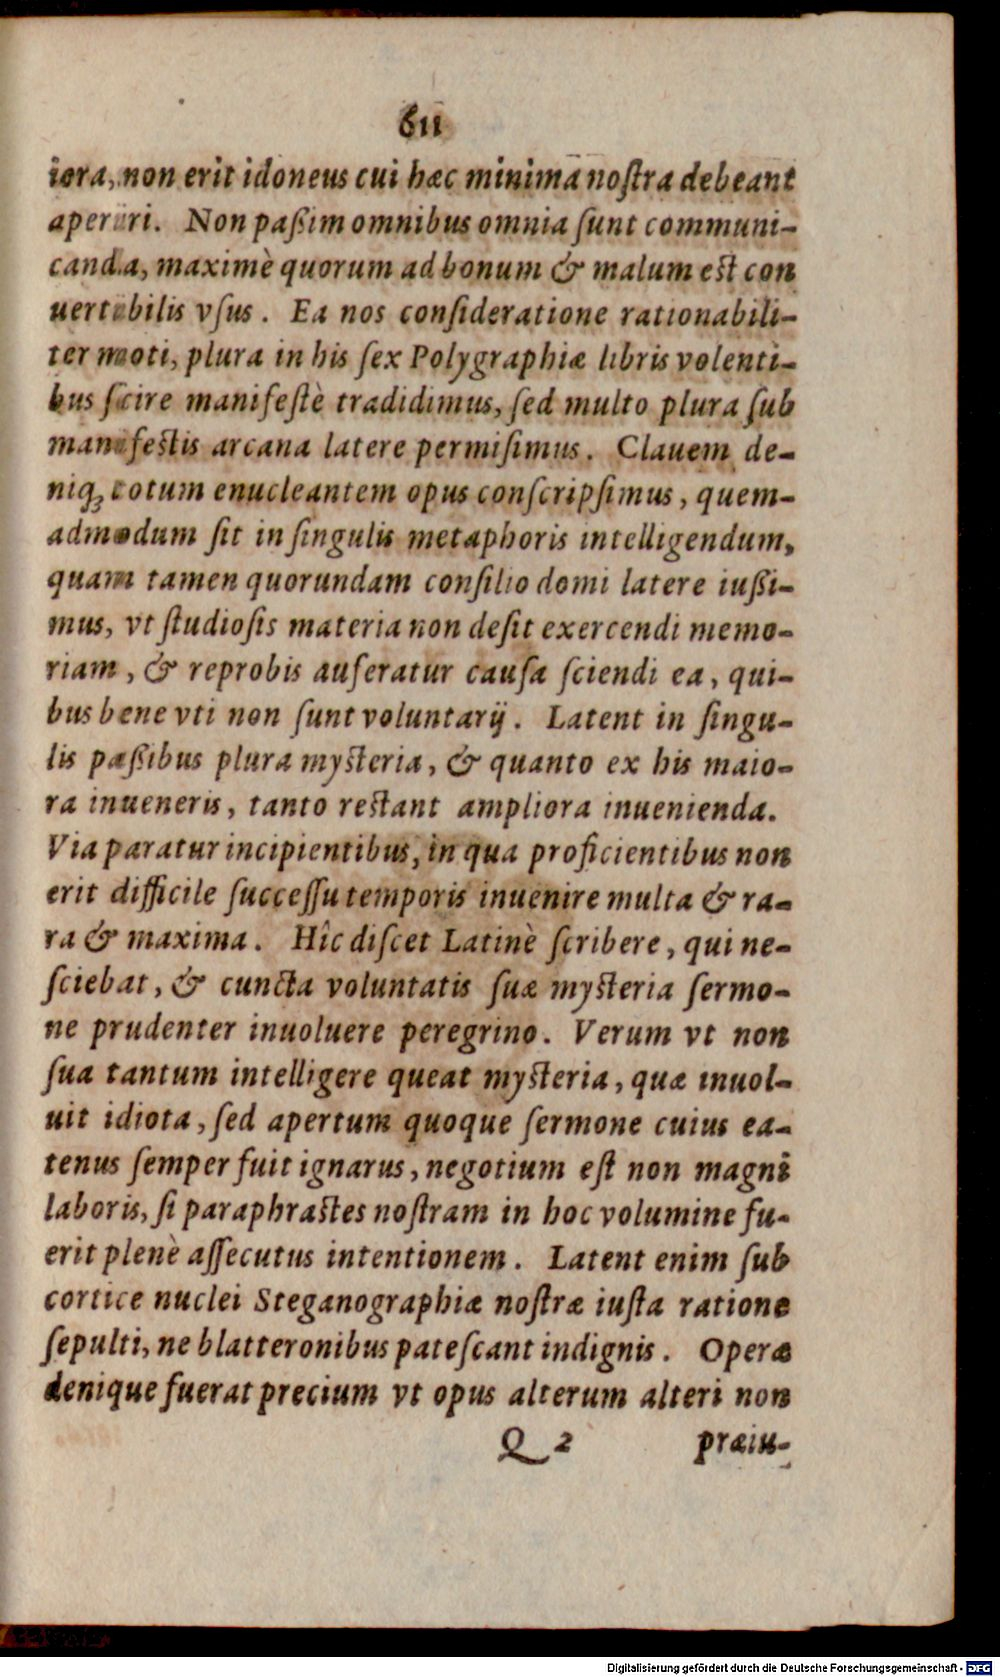 611
iora, non erit idoneus cui hæc minima nostra debeant
aperiri. Non paßim omnibus omnia ſunt communi-
canda, maximè quorum ad bonum & malum est con
uertibilis vſus. Ea nos conſideratione rationabili-
ter moti, plura in his ſex Polygraphiæ libris volenti-
bus ſcire manifeſtè tradidimus, ſed multo plura ſub
manifestis arcana latere permiſimus. Clauem de-
niq́ꝫ totum enucleantem opus conſcripſimus, quem-
admodum ſit in ſingulis metaphoris intelligendum,
quam tamen quorundam conſilio domi latere iußi-
mus, vt ſtudioſis materia non deſit exercendi memo-
riam, & reprobis auferatur cauſa ſciendi ea, qui-
bus bene vti non ſunt voluntarij. Latent in ſingu-
lis paßibus plura mysteria, & quanto ex his maio-
ra inueneris, tanto restant ampliora inuenienda.
Via paratur incipientibus, in qua proficientibus non
erit difficile ſucceſſu temporis inuenire multa & ra-
ra & maxima. Hîc diſcet Latinè ſcribere, qui ne-
ſciebat, & cuncta voluntatis ſuæ mysteria ſermo-
ne prudenter inuoluere peregrino. Verum vt non
ſua tantum intelligere queat mysteria, quæ inuol-
uit idiota, ſed apertum quoque ſermone cuius ea-
tenus ſemper fuit ignarus, negotium eſt non magni
laboris, ſi paraphrastes noſtram in hoc volumine fu-
erit plenè aſſecutus intentionem. Latent enim ſub
cortice nuclei Steganographiæ noſtræ iuſta ratione
ſepulti, ne blatteronibus pateſcant indignis. Operæ
denique fuerat precium vt opus alterum alteri non
Q 2 præiu-
Digitalisierung gefördert durch die Deutsche Forschungsgemeinschaft - DFG